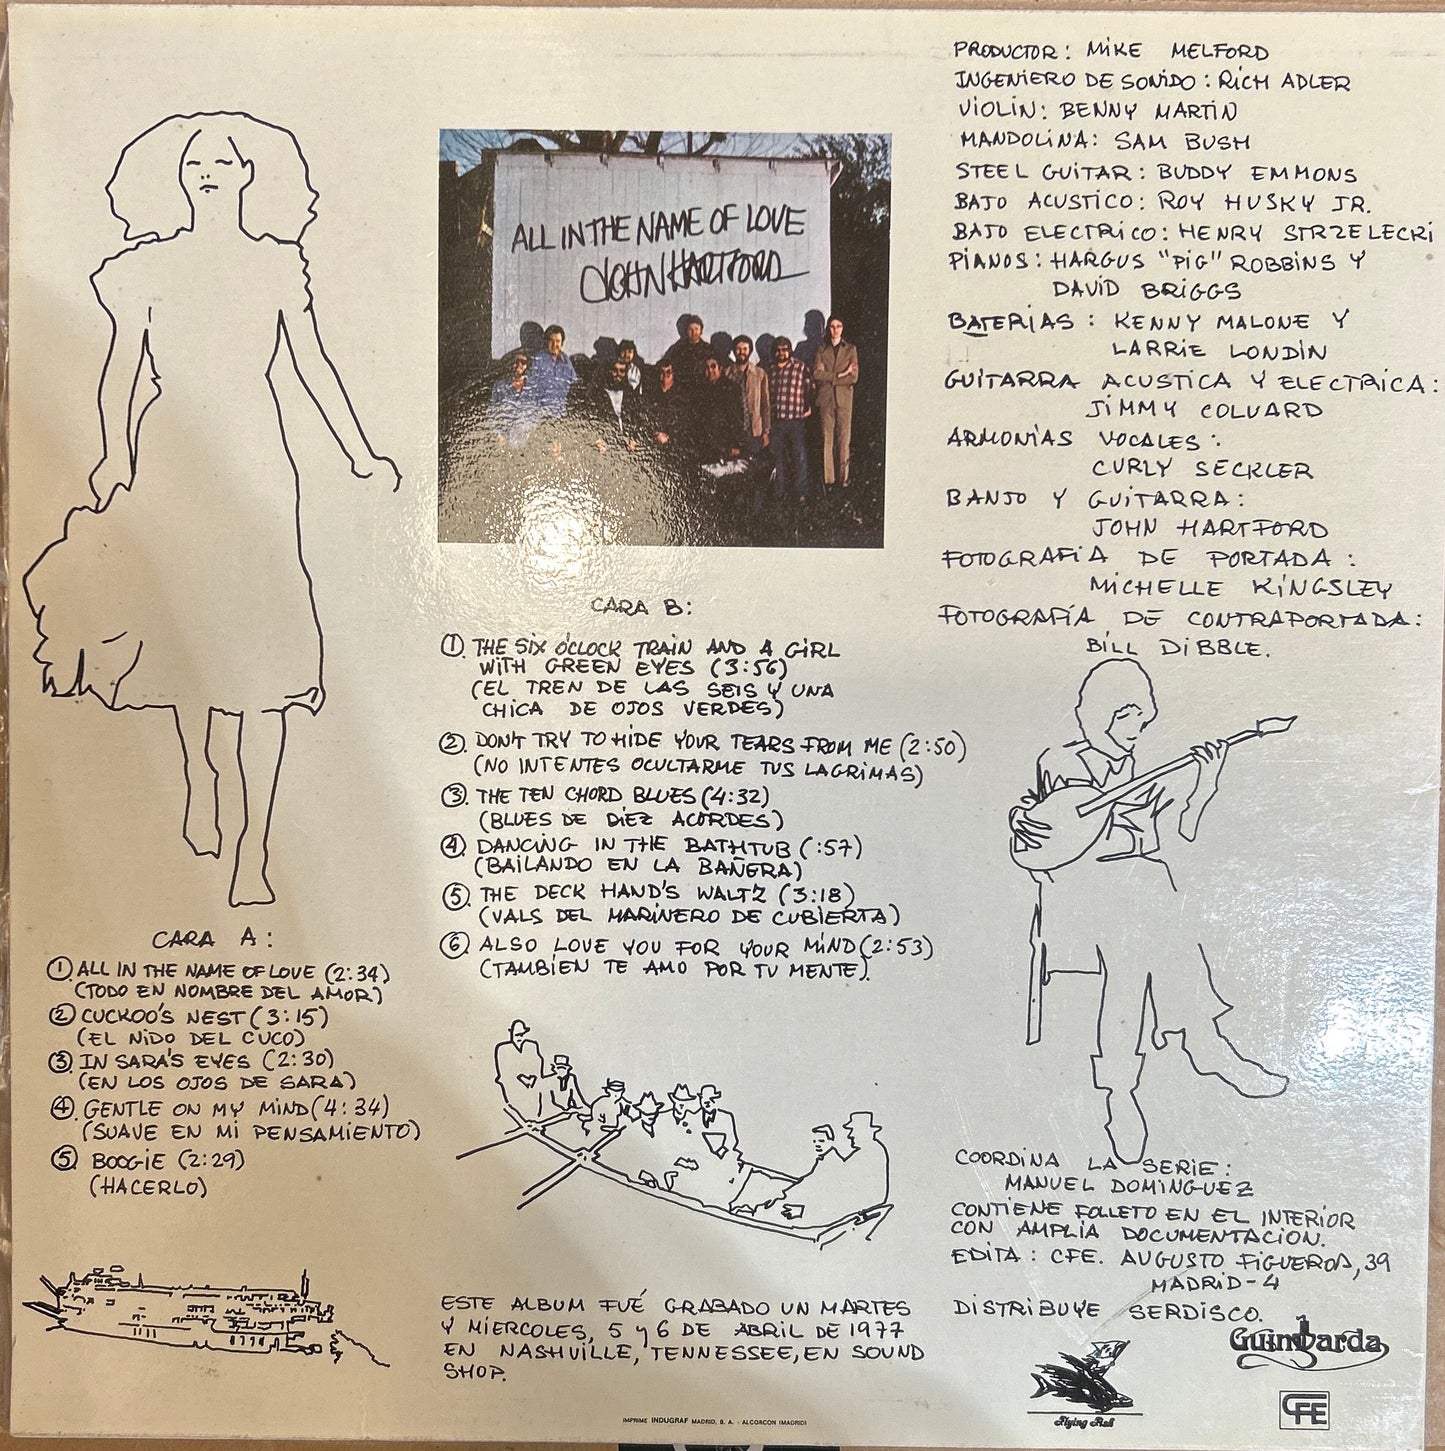 PRODUCTOR: MIKE MELFORD
INGENIERO DE SONIDO: RICH ADLER
VIOLIN: BENNY MARTIN
MANDOLINA: SAM BUSH
STEEL GUITAR: BUDDY EMMONS
BAJO ACUSTICO: ROY HUSKY JR.
BAJO ELECTRICO: HENRY STRZELECKI
PIANOS: HARGUS "PIG" ROBBINS Y
DAVID BRIGGS
BATERIAS: KENNY MALONE Y
LARRIE LONDIN
GUITARRA ACUSTICA Y ELECTRICA:
JIMMY COLVARD
ARMONIAS VOCALES:
CURLY SECKLER
BANJO Y GUITARRA:
JOHN HARTFORD
FOTOGRAFIA DE PORTADA:
MICHELLE KINGSLEY
FOTOGRAFÍA DE CONTRAPORTADA:
BILL DIBBLE.
ALL IN THE NAME OF LOVE
JOHN HARTFORD
CARA A:
① ALL IN THE NAME OF LOVE (2:34)
(TODO EN NOMBRE DEL AMOR)
② CUCKOO'S NEST (3:15)
(EL NIDO DEL CUCO)
③ IN SARA'S EYES (2:30)
(EN LOS OJOS DE SARA)
④ GENTLE ON MY MIND (4:34)
(SUAVE EN MI PENSAMIENTO)
⑤ BOOGIE (2:29)
(HACERLO)
CARA B:
① THE SIX O'CLOCK TRAIN AND A GIRL
WITH GREEN EYES (3:56)
(EL TREN DE LAS SEIS Y UNA
CHICA DE OJOS VERDES)
② DON'T TRY TO HIDE YOUR TEARS FROM ME (2:50)
(NO INTENTES OCULTARME TUS LAGRIMAS)
③ THE TEN CHORD BLUES (4:32)
(BLUES DE DIEZ ACORDES)
④ DANCING IN THE BATHTUB (:57)
(BAILANDO EN LA BAÑERA)
⑤ THE DECK HAND'S WALTZ (3:18)
(VALS DEL MARINERO DE CUBIERTA)
⑥ ALSO LOVE YOU FOR YOUR MIND (2:53)
(TAMBIEN TE AMO POR TU MENTE).
ESTE ALBUM FUÉ GRABADO UN MARTES
Y MIERCOLES, 5 y 6 DE ABRIL DE 1977
EN NASHVILLE, TENNESSEE, EN SOUND
SHOP.
COORDINA LA SERIE:
MANUEL DOMINGUEZ
CONTIENE FOLLETO EN EL INTERIOR
CON AMPLIA DOCUMENTACION.
EDITA: CFE. AUGUSTO FIGUEROA, 39
MADRID-4
DISTRIBUYE SERDISCO.
Guimbarda
Flying Fish
CFE
IMPRIME INDUGRAF MADRID, S. A. - ALCORCON (MADRID)